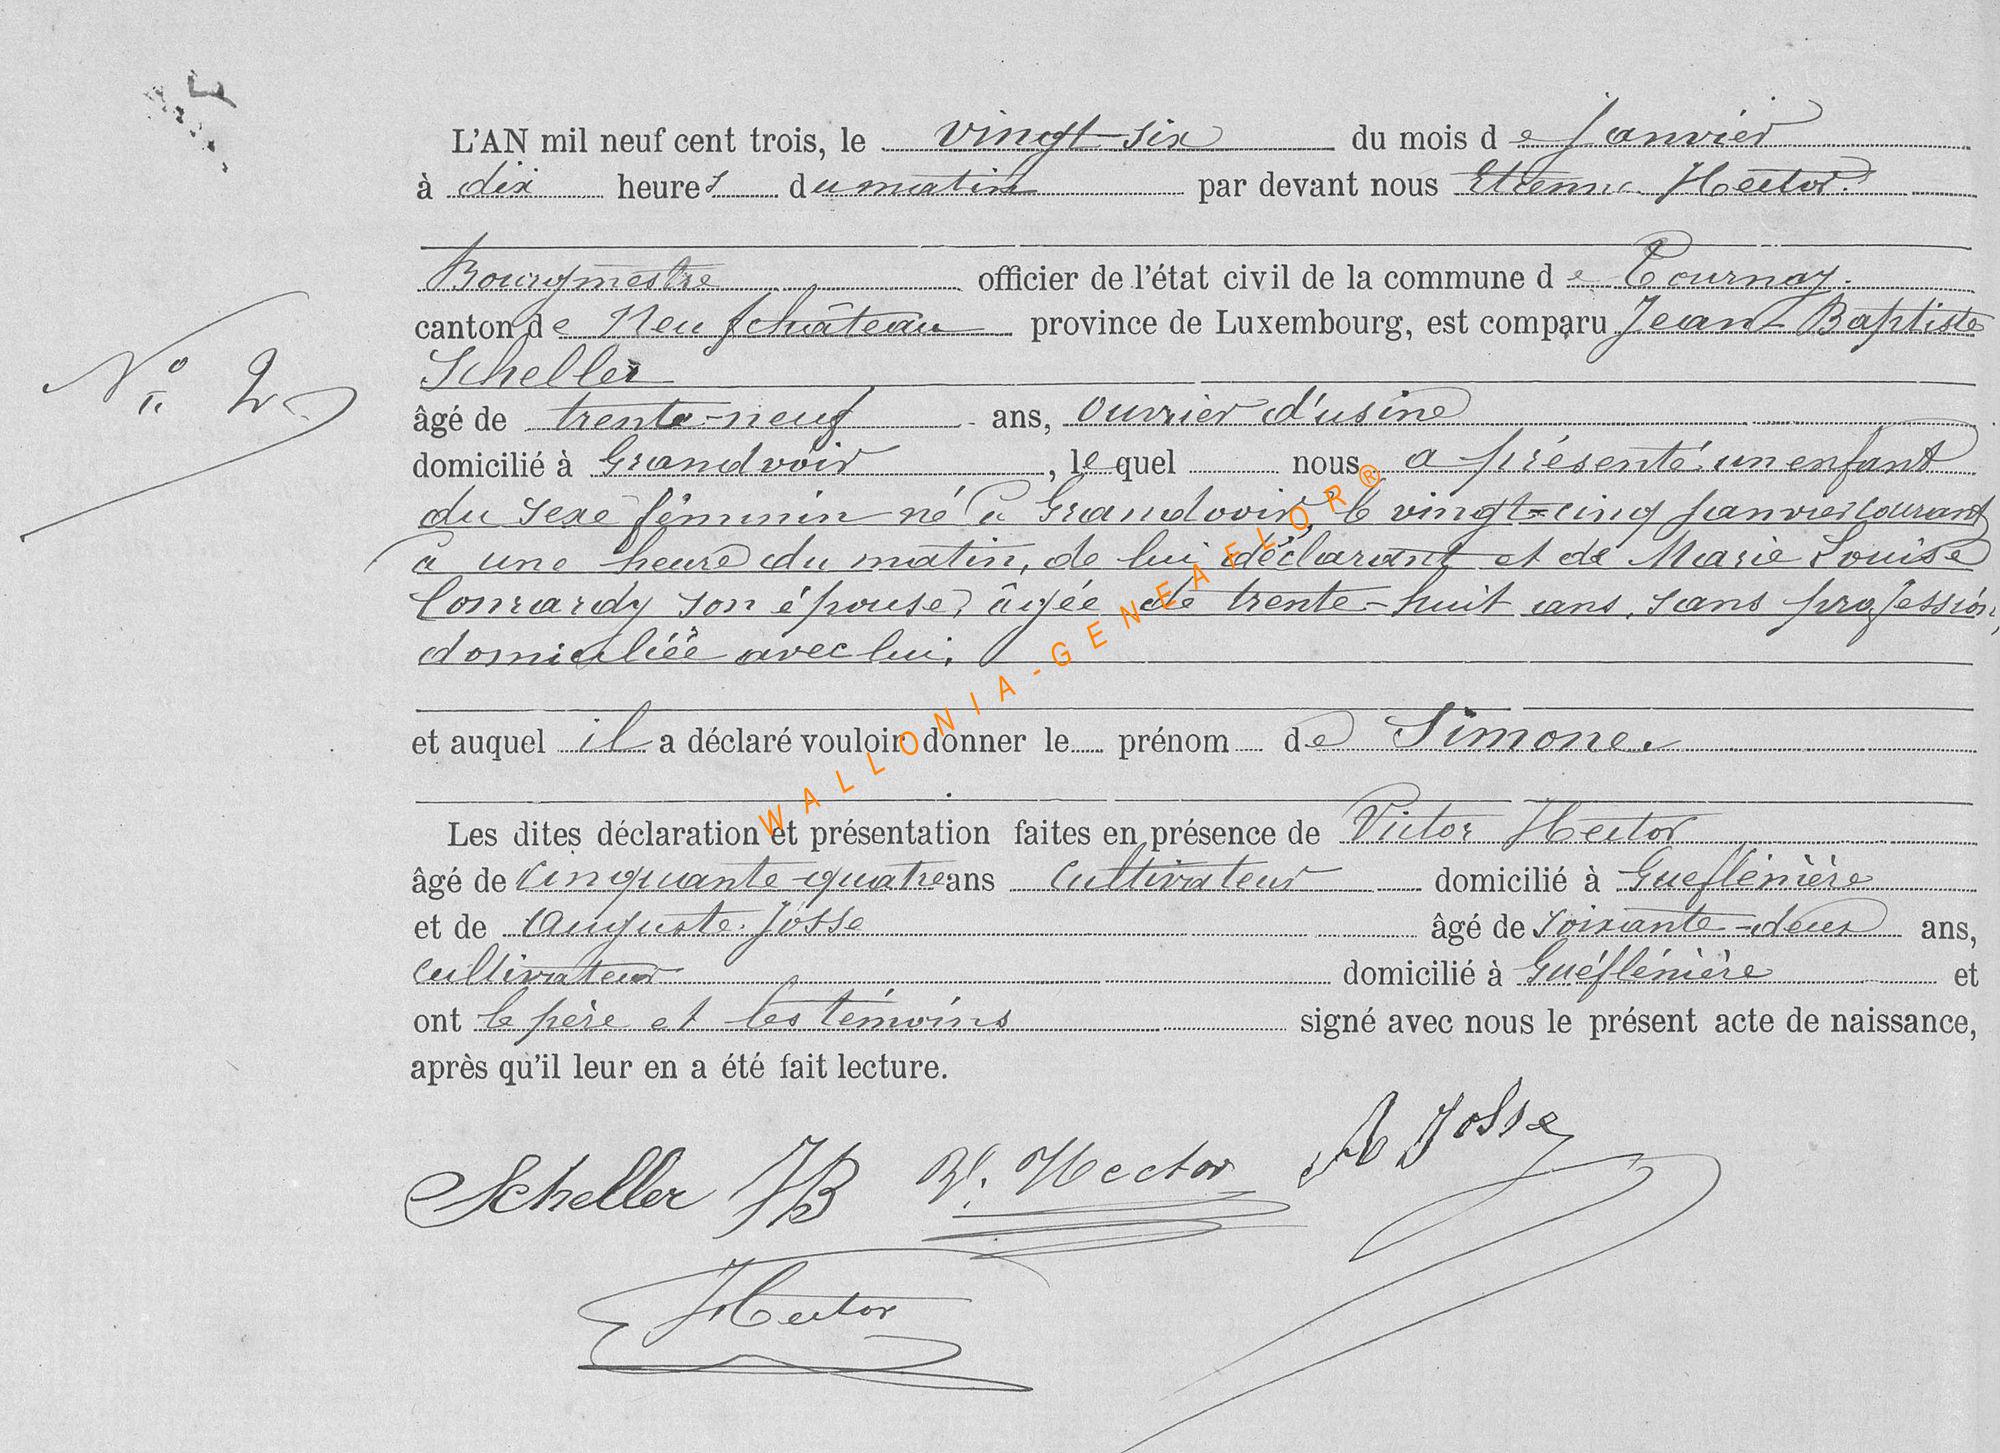 L'AN mil neuf cent trois, le vingt-six du mois de janvier
à dix heures du matin par devant nous Etienne Hector
Bourgmestre officier de l'état civil de la commune de Tournay.
canton de Neufchâteau province de Luxembourg, est comparu Jean-Baptiste
Scheller
âgé de trente-neuf ans, ouvrier d'usine
domicilié à Grandvoir, lequel nous a présenté un enfant
N° 2
du sexe féminin né à Grandvoir, le vingt-cinq janvier courant
à une heure du matin, de lui déclarant et de Marie Louise
Conrardy son épouse, âgée de trente-huit ans, sans profession,
domiciliée avec lui,
et auquel il a déclaré vouloir donner le prénom de Simone.
Les dites déclaration et présentation faites en présence de Victor Hector
âgé de cinquante-quatre ans cultivateur domicilié à Gueflénière
et de Auguste Josse âgé de soixante-deux ans,
cultivateur domicilié à Guéflénière et
ont le père et les témoins signé avec nous le présent acte de naissance,
après qu'il leur en a été fait lecture.
Scheller JB V. Hector A Josse
Hector
WALLONIA-GENEAFLOR®